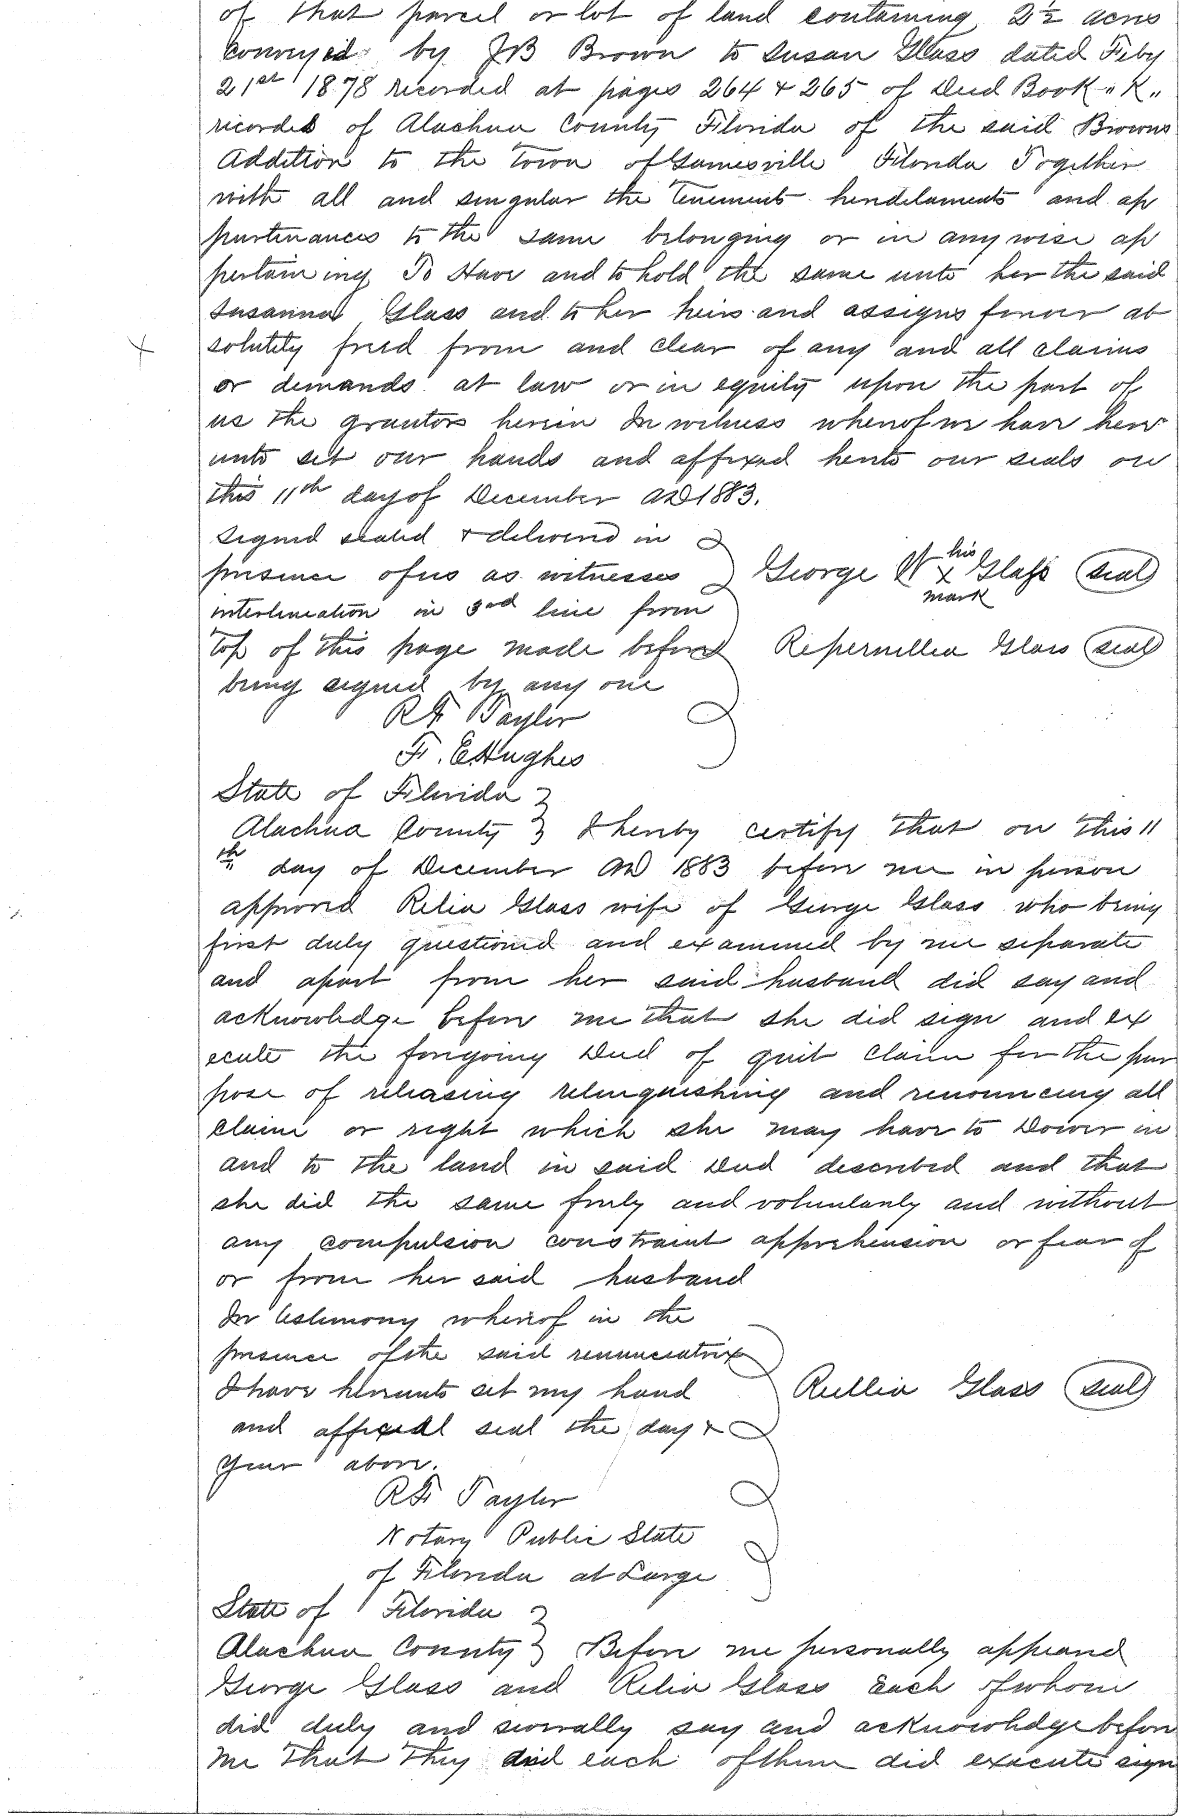 of that parcel or lot of land containing 2½ acres
conveyed by JB Brown to Susan Glass dated Feby
21st 1878 recorded at pages 264 & 265 of Deed Book "K"
records of Alachua County Florida of the said Browns
Addition to the Town of Gainesville Florida Together
with all and singular the Tenements hereditaments and ap
purtenances to the same belonging or in any wise ap
pertaining To Have and to hold the same unto her the said
Susanna Glass and to her heirs and assigns forever ab
solutely freed from and clear of any and all claims
or demands at law or in equity upon the part of
us the grantors herein In witness whereof we have here
unto set our hands and affixed hereto our seals on
this 11th day of December AD 1883.
Signed sealed & delivered in
presence of us as witnesses
George W his x mark Glass (seal)
interlineation in 3rd line from
Top of this page made before
Repernellia Glass (seal)
being signed by any one
RF Taylor
F. E Hughes
State of Florida
Alachua County } I hereby certify that on this 11
th day of December AD 1883 before me in person
appeared Relia Glass wife of George Glass who being
first duly questioned and examined by me separate
and apart from her said husband did say and
acknowledge before me that she did sign and ex
ecute the foregoing Deed of quit claim for the pur
pose of releasing relinquishing and renouncing all
claim or right which she may have to Dower in
and to the land in said Deed described and that
she did the same freely and voluntarily and without
any compulsion constraint apprehension or fear of
or from her said husband
In testimony whereof in the
presence of the said renunciatrix
I have hereunto set my hand
Rellia Glass (seal)
and affixed seal the day &
year above.
RF Taylor
Notary Public State
of Florida at Large
State of Florida
Alachua County } Before me personally appeared
George Glass and Relia Glass Each of whom
did duly and severally say and acknowledge before
me that they did each of them did execute sign